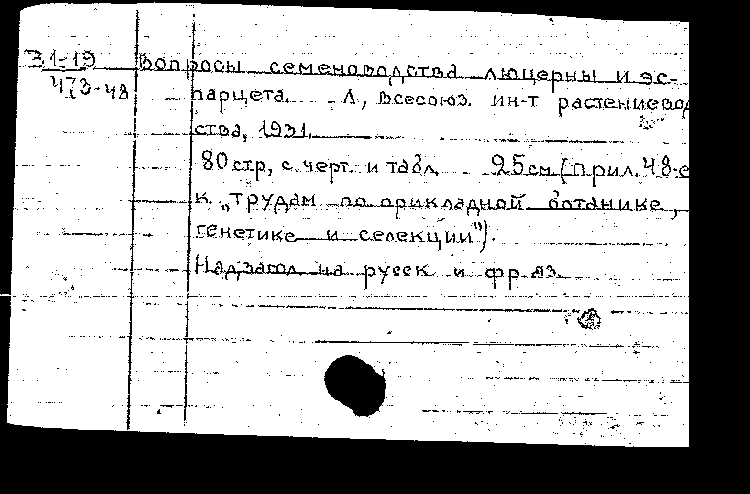 31-19
473-48
Вопросы семеноводства люцерны и эс-
парцета. Л, Всесоюз. ин-т растениевод
ства, 1931.
80 стр, с черт. и табл. 25 см (Прил. 48-е
к „Трудам по прикладной ботанике,
генетике и селекции").
Надзагол на русск и фр яз.